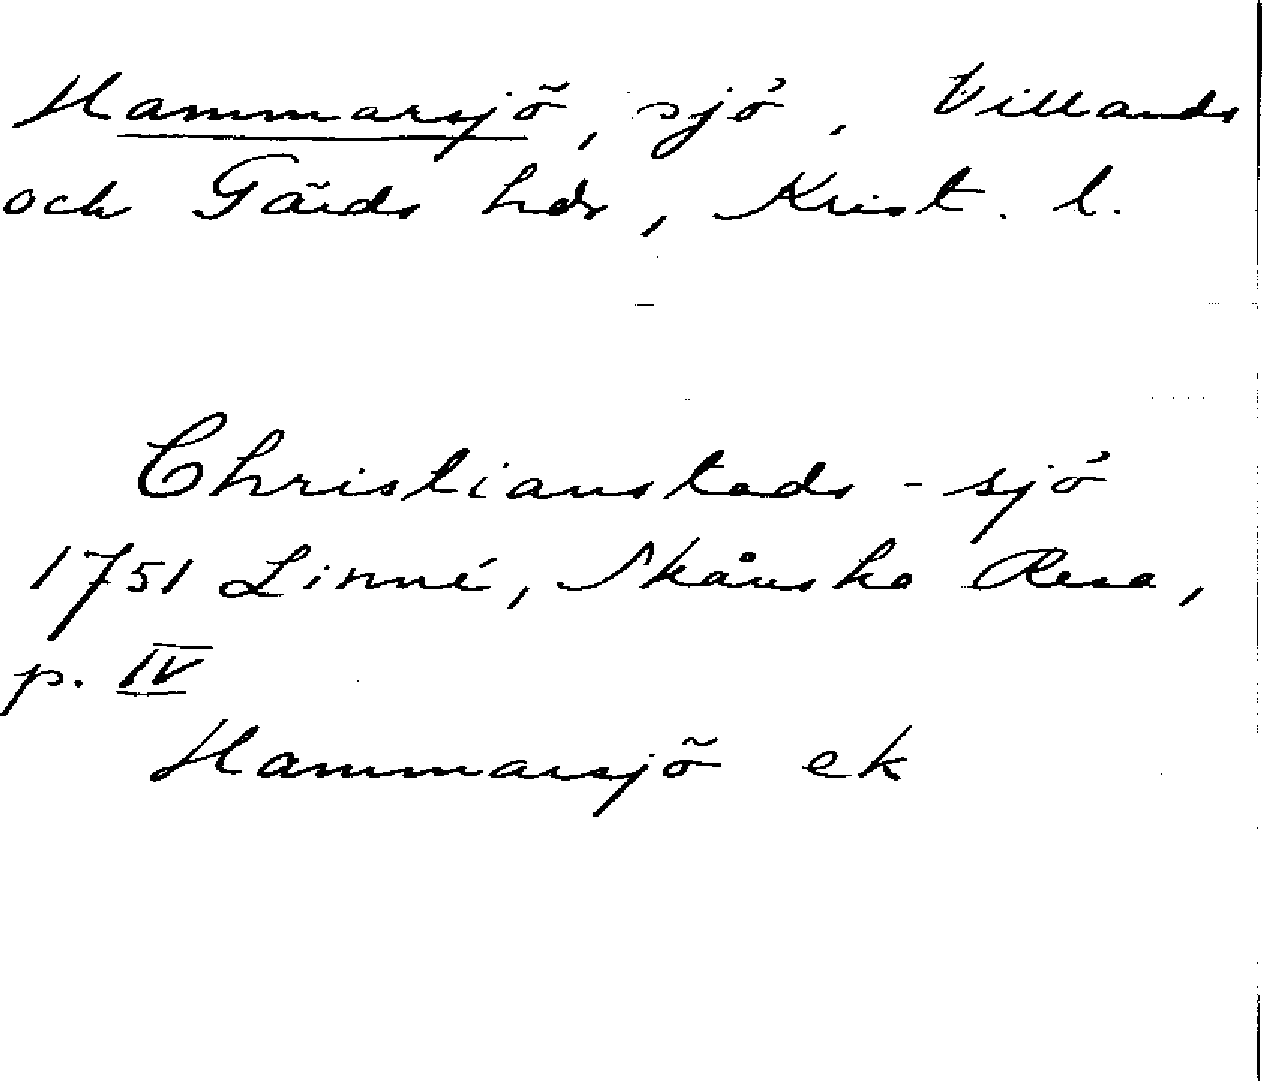 Hammarsjö, sjö, Villands
och Gärds hdr, Krist. l.
Christianstads-sjö
1751 Linné, Skånska Resa,
p. IV
Hammarsjö ek